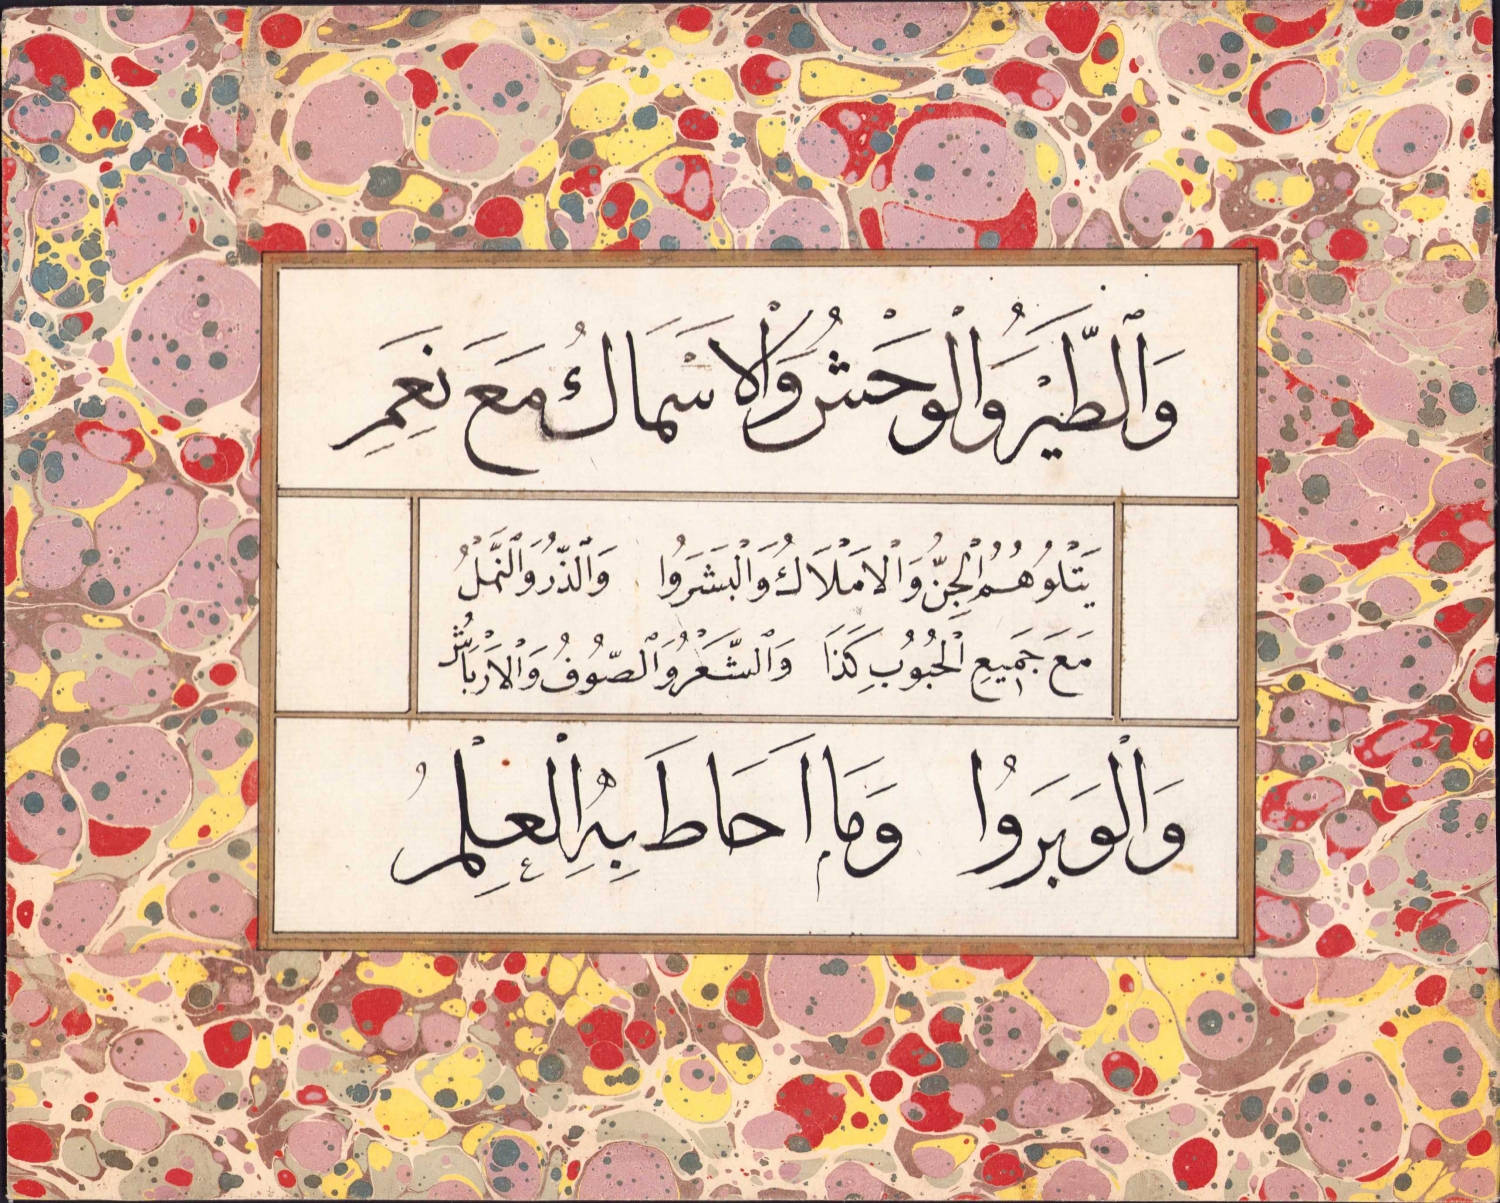 وَالطَّيْرُ وَالْوَحْشُ وَالْاَسْمَاكُ مَعَ نَعِمٍ
يَتْلُوهُمُ الْجِنُّ وَالْاَمْلَاكُ وَالْبَشَرُوا وَالذَّرُ وَالنَّمْلُ
مَعَ جَمِيعِ الْحُبُوبِ كَذَا وَالشَّعْرُ وَالصُّوفُ وَالْاَرْيَاشُ
وَالْوَبَرُوا وَمَا اَحَاطَ بِهِ الْعِلْمُ